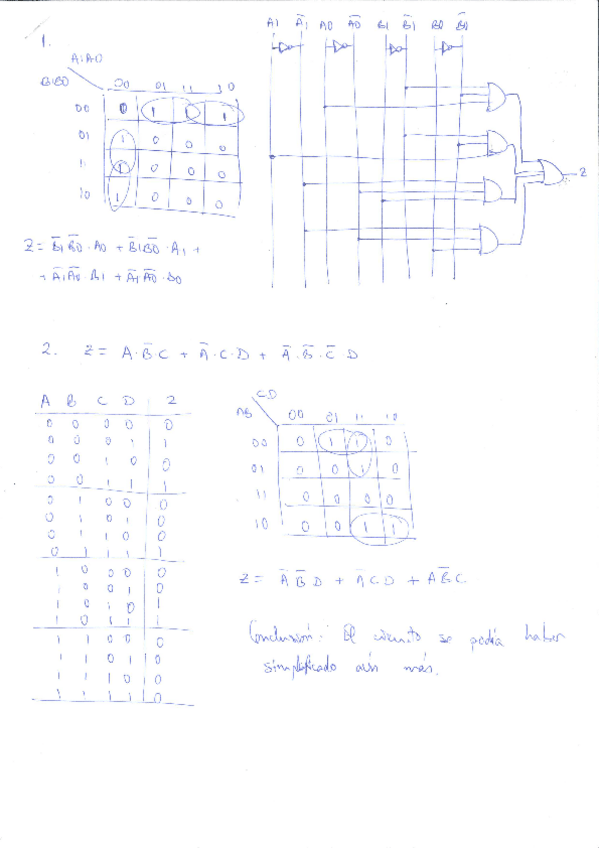 1.
A1 A̅1 A0 A̅0 B1 B̅1 B0 B̅0
A1A0
B1B0
00 01 11 10
00 0 1 1 1
01 1 0 0 0
11 1 0 0 0
10 1 0 0 0
Z
Z = B̅1 B̅0 · A0 + B̅1 B̅0 · A1 +
+ A̅1 A̅0 · B1 + A̅1 A̅0 · B0
2. Z = A · B̅ · C + A̅ · C · D + A̅ · B̅ · C̅ · D
A B C D Z
0 0 0 0 0
0 0 0 1 1
0 0 1 0 0
0 0 1 1 1
0 1 0 0 0
0 1 0 1 0
0 1 1 0 0
0 1 1 1 1
1 0 0 0 0
1 0 0 1 0
1 0 1 0 1
1 0 1 1 1
1 1 0 0 0
1 1 0 1 0
1 1 1 0 0
1 1 1 1 0
CD
AB 00 01 11 10
00 0 1 1 0
01 0 0 1 0
11 0 0 0 0
10 0 0 1 1
Z = A̅ B̅ D + A̅ C D + A B̅ C
Conclusión: El circuito se podía haber
simplificado aún más.